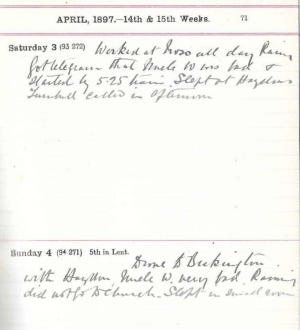 APRIL, 1897.—14th & 15th Weeks. 71
Saturday 3 (93-272) Worked at all day Rainy
Got telegram that Uncle W was bad &
started by 5-25 train. Slept at Haydons
Turnbull called in afternoon
Sunday 4 (94-271) 5th in Lent.
Drove to Beckington
with Haydon, Uncle W. very bad. Rainy
did not go to Church. Slept in small room